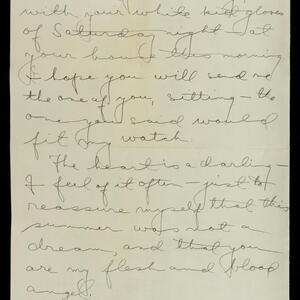 with your white kid gloves
of Saturday night - at
your house this morning
I hope you will send me
the one of you, sitting - the
one you said would
fit my watch.
The heart is a darling -
I feel of it often - just to
reassure myself that this
summer was not a
dream, and that you
are my flesh and blood
angel.